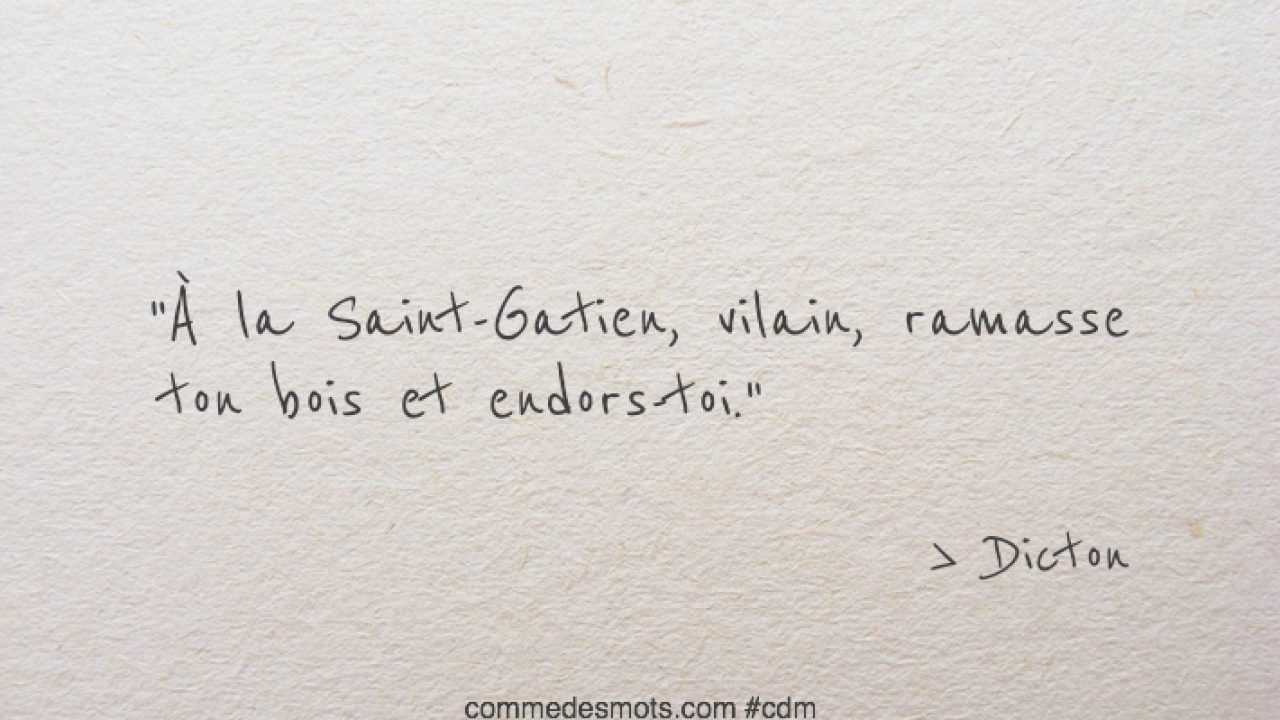 "À la Saint-Gatien, vilain, ramasse
ton bois et endors-toi."
> Dicton
commedesmots.com #cdm